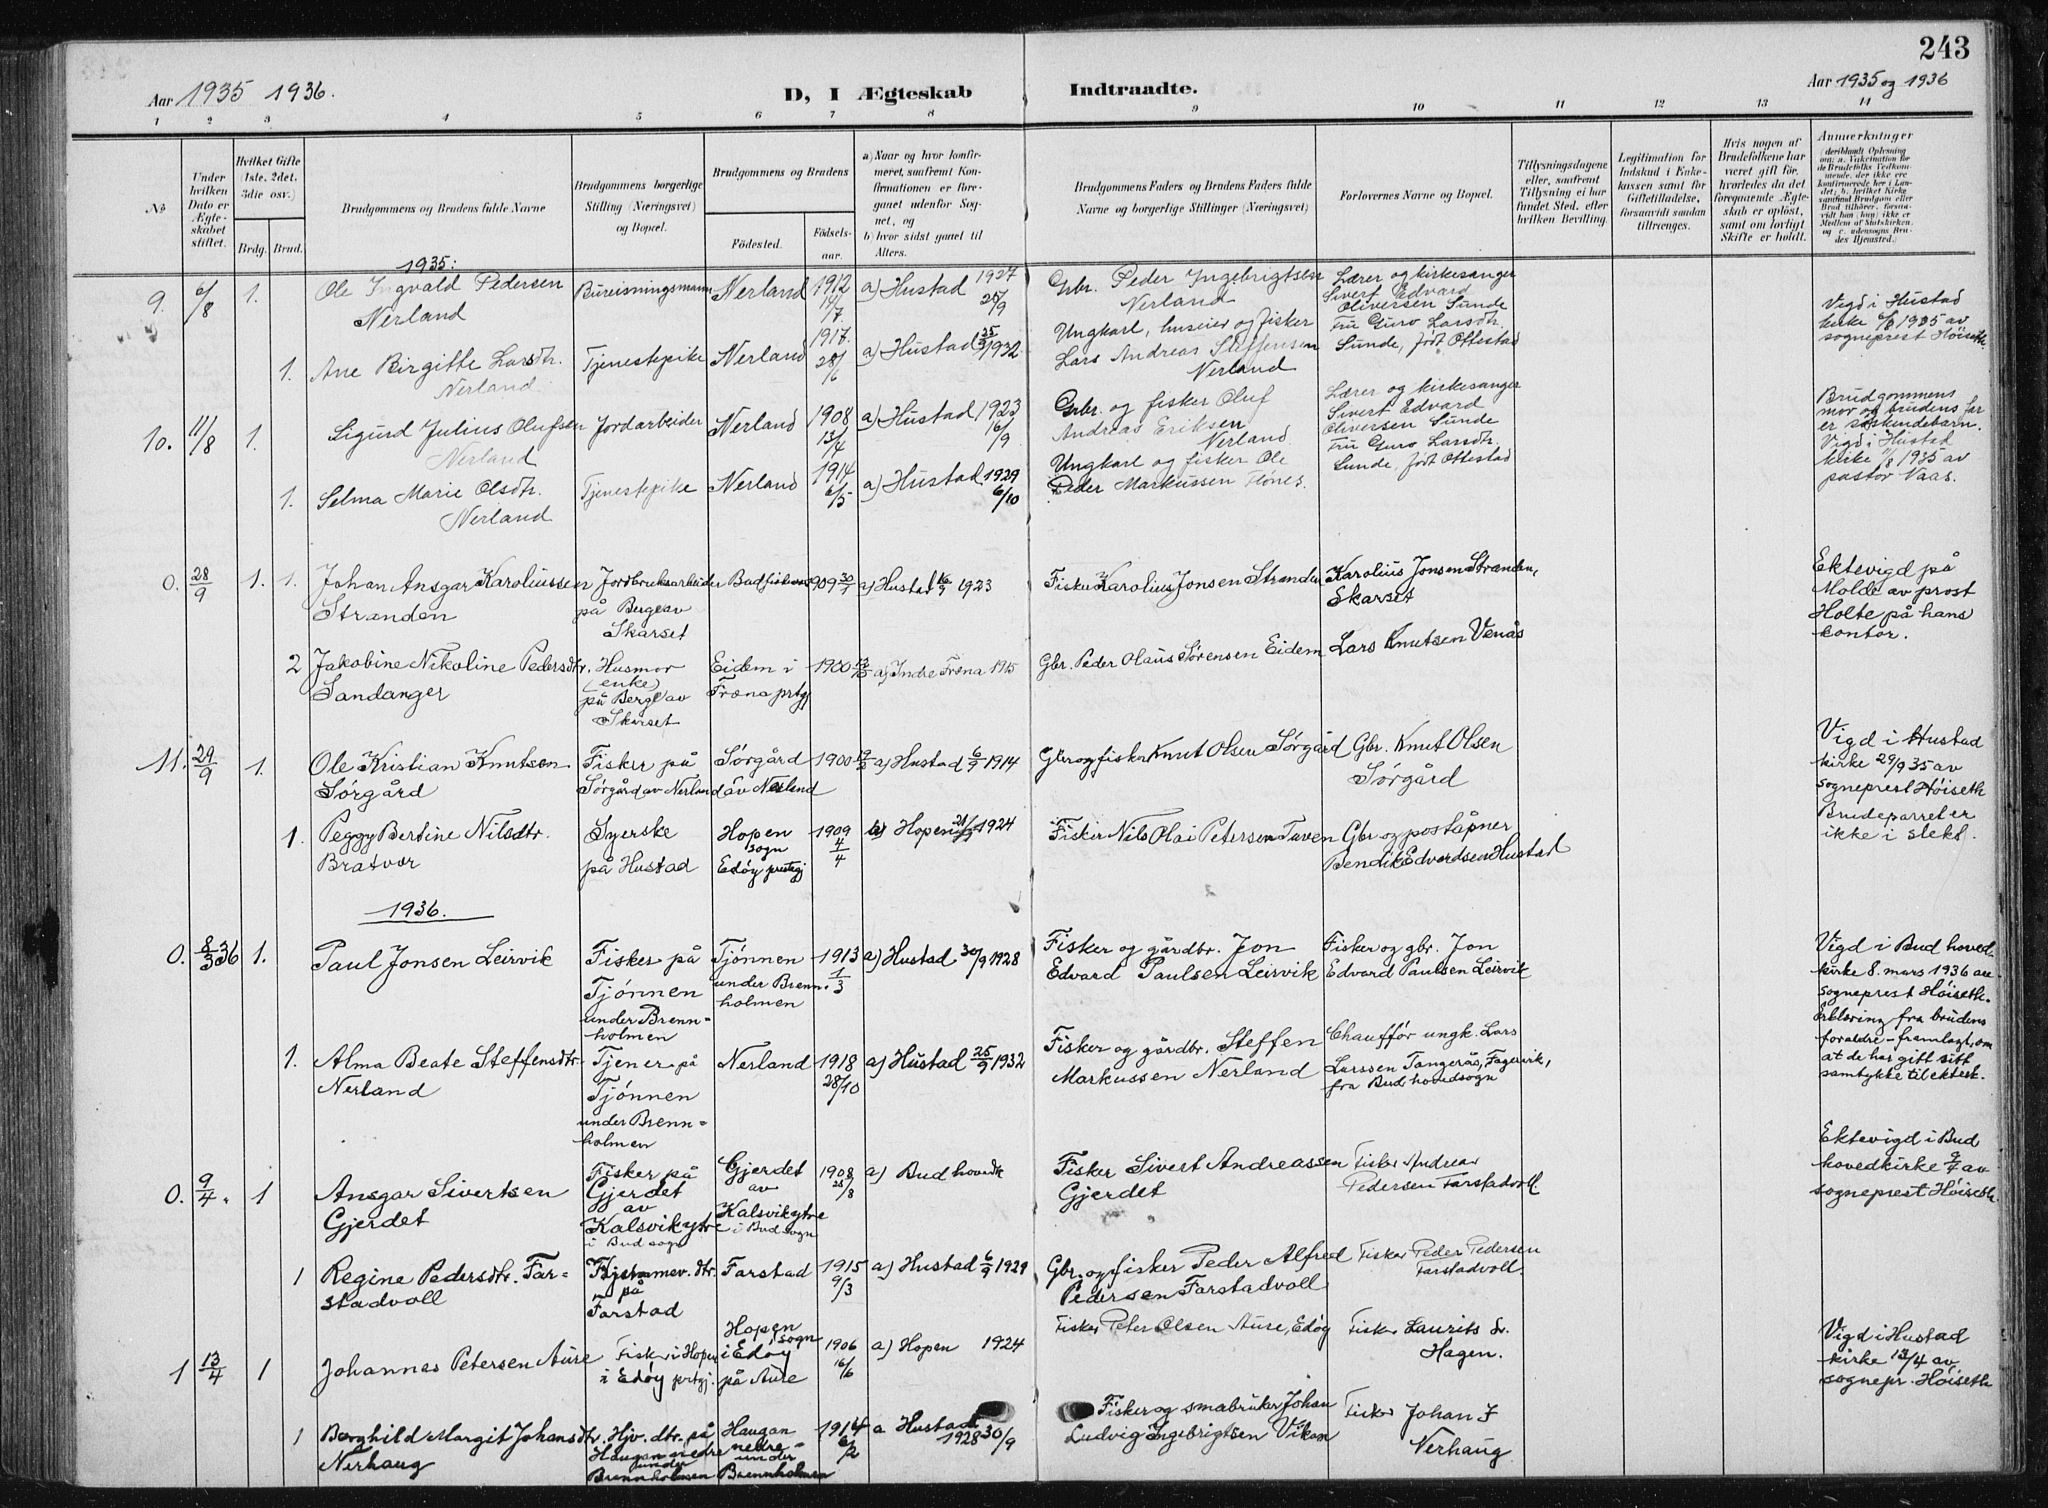 243
Aar 1935 1936.
D, I Ægteskab Indtraadte.
Aar 1935 og 1936
1 2 3 4 5 6 7 8 9 10 11 12 13 14
No
Under hvilken Dato er Ægteskabet stiftet.
Hvilket Gifte (1ste, 2det, 3die osv.)
Brdg. Brud.
Brudgommens og Brudens fulde Navne
Brudgommens borgerlige Stilling (Næringsvei) og Bopæl.
Brudgommens og Brudens
Fødested. Fødselsaar.
a) Naar og hvor konfirmeret, saafremt Konfirmationen er foregaaet udenfor Sognet, og
b) hvor sidst gaaet til Alters.
Brudgommens Faders og Brudens Faders fulde Navne og borgerlige Stillinger (Næringsvei)
Forlovernes Navne og Bopæl.
Tillysningsdagene eller, saafremt Tillysning ei har fundet Sted, efter hvilken Bevilling.
Legitimation for Indskud i Enkekassen samt for Giftetilladelse, forsaavidt saadan tiltrænges.
Hvis nogen af Brudefolkene har været gift før, hvorledes da det foregaaende Ægteskab er opløst, samt om lovligt Skifte er holdt.
Anmerkninger
1935:
9. 6/8 1. Ole Ingvald Pedersen Nerland
Bureisningsmann
Nerland
1912 14/7
a) Hustad 1927 25/9
Gbr. Peder Ingebrigtsen Nerland
Lærer og kirkesanger Sivert Edvard Oliversen Sunde
Vigd i Hustad kirke 6/8 1935 av sogneprest Höiseth.
1. Ane Birgitte Larsdtr. Nerland
Tjenestepike
Nerland
1917. 28/6
a) Hustad 25/9 1932
Ungkarl, huseier og fisker Lars Andreas Steffensen Nerland
Fru Guro Larsdtr. Sunde, født Ottestad
10. 11/8 1. Sigurd Julius Olufsen Nerland
Jordarbeider
Nerland
1908 13/4
a) Hustad 1923 16/9
Gbr. og fisker Oluf Andreas Eriksen Nerland
Lærer og kirkesanger Sivert Edvard Oliversen Sunde
Brudgommens mor og brudens far er søskendebarn. Vigd i Hustad kirke 11/8 1935 av pastor Vaas.
1. Selma Marie Olsdtr. Nerland
Tjenestepike
Nerland
1914 6/5
a) Hustad 1929 6/10
Ungkarl og fisker Ole Peder Markussen Hönes.
Fru Guro Larsdtr. Sunde, født Ottestad
0. 28/9 1. 1. Johan Ansgar Karoliussen Stranden
Jordbruksarbeider på Berge av Skarset
1909 30/7
a) Hustad 16/9 1923
Fisker Karolius Jonsen Stranden
Karolius Jonsen Stranden, Skarset
Ektevigd på Molde av prost Holte på hans kontor.
2 Jakobine Nikoline Pedersdtr. Sandanger
Husmor (enke) på Berge av Skarset
Eidem i Fræna prtgj
1900
a) Indre Fræna 1915
Gbr. Peder Olaus Sørensen Eidem
Lars Knutsen Venås
11. 29/9 1. Ole Kristian Knutsen Sørgård
Fisker på Sørgård av Nerland
Sørgård av Nerland
1900
a) Hustad 6/9 1914
Gbr og fisker Knut Olsen Sørgård
Gbr. Knut Olsen Sørgård
Vigd i Hustad kirke 29/9 35 av sogneprest Höiseth Brudeparret er ikke i slekt.
1. Peggy Bertine Nilsdtr. Bratvær
Syerske på Hustad
Hopen sogn Edöy prestgj
1909 4/4
a) Hopen 1924
Fisker Nils Olai Petersen Tuven
Gbr og poståpner Bendik Edvardsen Hustad
1936.
0. 8/3 36 1. Paul Jonsen Leirvik
Fisker på Tjönnen under Brennholmen
Tjönnen under Brennholmen
1913 1/3
a) Hustad 30/9 1928
Fisker og gårdbr. Jon Edvard Paulsen Leirvik
Fisker og gbr. Jon Edvard Paulsen Leirvik
Vigd i Bud hovedkirke 8. mars 1936 av sogneprest Höiseth. Erklæring fra brudens foreldre framlagt, om at de har gitt sitt samtykke til ektesk.
1. Alma Beate Steffensdtr. Nerland
Tjener på Tjönnen under Brennholmen
Nerland
1918 28/10
a) Hustad 25/9 1932
Fisker og gårdbr. Steffen Markussen Nerland
Chauffør ungk. Lars Larssen Tangerås, Fagervik, fra Bud hovedsogn
0. 9/4. 1 Ansgar Sivertsen Gjerdet
Fisker på Gjerdet av Kalsvikytre i Bud sogn
Gjerdet av Kalsvikytre i Bud sogn
1908 25/8
a) Bud hovedk
Fisker Sivert Andreassen Gjerdet
Fisker Andreas Pedersen Farstadvoll
Ektevigd i Bud hovedkirke 9/4 av sogneprest Höiseth.
1 Regine Pedersdtr. Farstadvoll
Hjemmev. dtr. på Farstad
Farstad
1915 9/3
a) Hustad 6/9 1929
Gbr. og fisker Peder Alfred Pedersen Farstadvoll
Fisker Peder Pedersen Farstadvoll.
1 13/4 1 Johannes Petersen Aure
Fisker i Hopen i Edöy prtgj.
Hopen sogn i Edöy på Aure
1906 16/6
a) Hopen 1924
Fisker Peter Olsen Aure, Edöy
Fisker Laurits Hagen.
Vigd i Hustad kirke 13/4 av sognepr. Höiseth
1 Borghild Margit Johansdtr. Nerhaug
Hjv. dtr. på Haugan nedre under Brennholmen
Haugan nedre under Brennholmen
1914 6/2
a Hustad 1928 30/9
Fisker og småbruker Johan Ludvig Ingebrigtsen Vikan
Fisker Johan I Nerhaug